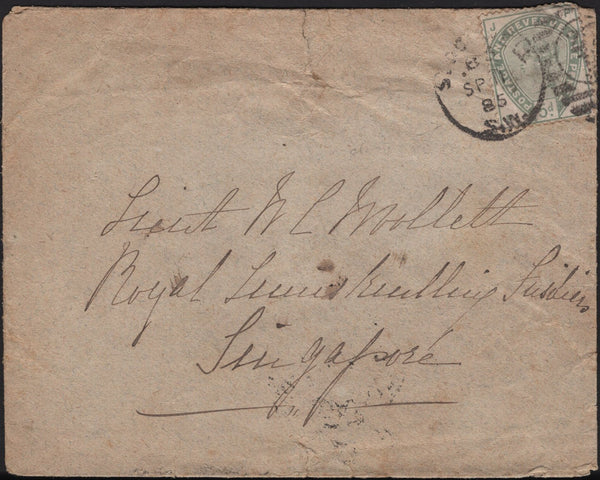 S.W.
SP
85
S.W
POSTAGE AND REVENUE
5d
Lieut W C Mollett
Royal Inniskilling Fusiliers
Singapore